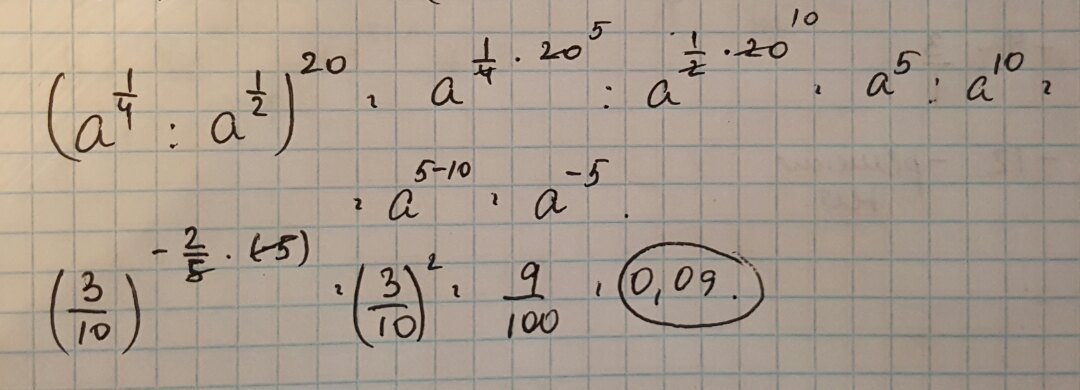 (a^{1/4} : a^{1/2})^{20} = a^{1/4 · 20^5} : a^{1/2 · 20^{10}} = a^5 : a^{10} =
= a^{5-10} = a^{-5}.
(3/10)^{-2/5 · (-5)} = (3/10)^2 = 9/100 = 0,09.